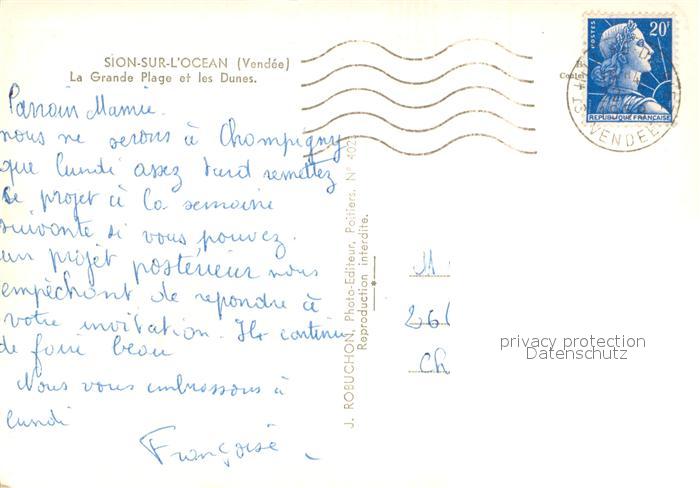 SION-SUR-L'OCEAN (Vendée)
La Grande Plage et les Dunes.
Parrain Mamie.
nous ne serons à Champigny
que lundi assez tard remettez
le projet à la semaine
suivante si vous pouvez.
un projet postérieur nous
empêchant de repondre à
votre invitation. Il continue
de faire beau
Nous vous embrassons à
lundi
Françoise
J. ROBUCHON, Photo-Editeur, Poitiers. N° 402
Reproduction interdite.
POSTES
20F
REPUBLIQUE FRANÇAISE
VENDEE
M.
261
Ch
privacy protection
Datenschutz